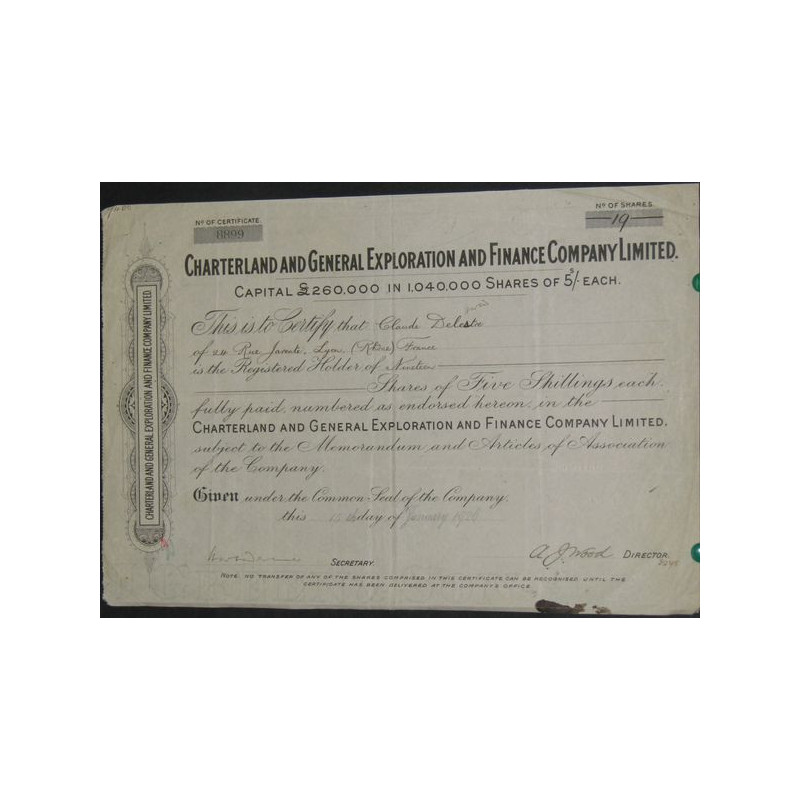 No OF CERTIFICATE
8899
No OF SHARES
19
CHARTERLAND AND GENERAL EXPLORATION AND FINANCE COMPANY LIMITED.
CAPITAL £260.000 IN 1.040.000 SHARES OF 5/- EACH.
This is to Certify that Claude
of 24 Rue Lyon (Rhône) France
is the Registered Holder of Nineteen
Shares of Five Shillings each.
fully paid, numbered as endorsed hereon, in the
CHARTERLAND AND GENERAL EXPLORATION AND FINANCE COMPANY LIMITED.
subject to the Memorandum and Articles of Association
of the Company.
Given under the Common Seal of the Company,
this day of January
SECRETARY.
A. J. Wood DIRECTOR.
NOTE. NO TRANSFER OF ANY OF THE SHARES COMPRISED IN THIS CERTIFICATE CAN BE RECOGNISED UNTIL THE
CERTIFICATE HAS BEEN DELIVERED AT THE COMPANY'S OFFICE.
CHARTERLAND AND GENERAL EXPLORATION AND FINANCE COMPANY LIMITED.